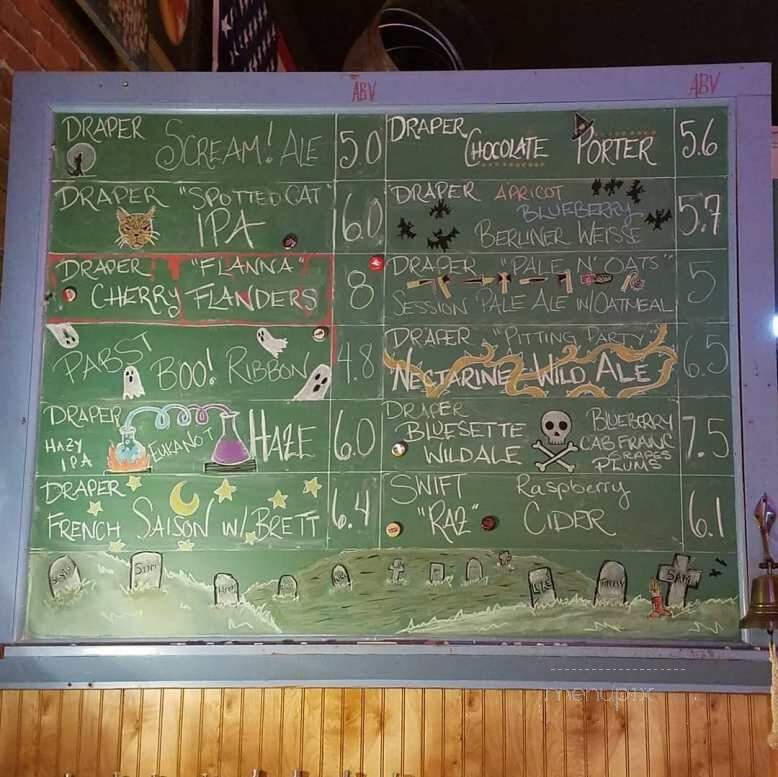 ABV
ABV
DRAPER SCREAM! ALE 5.0
DRAPER "SPOTTED CAT"
IPA 6.0
DRAPER "FLANNA"
CHERRY FLANDERS 8
PABST BOO! RIBBON 4.8
DRAPER
HAZY
IPA
EUKANOT HAZE 6.0
DRAPER
FRENCH SAISON W/ BRETT 6.4
DRAPER
CHOCOLATE PORTER 5.6
DRAPER APRICOT
BLUEBERRY
BERLINER WEISSE 5.7
DRAPER "PALE N' OATS"
SESSION PALE ALE W/OATMEAL 5
DRAPER "PITTING PARTY"
NECTARINE WILD ALE 6.5
DRAPER
BLUESETTE
WILD ALE
BLUEBERRY
CAB FRANC
GRAPES
PLUMS 7.5
SWIFT Raspberry
"RAZ" CIDER 6.1
SAM
menupix